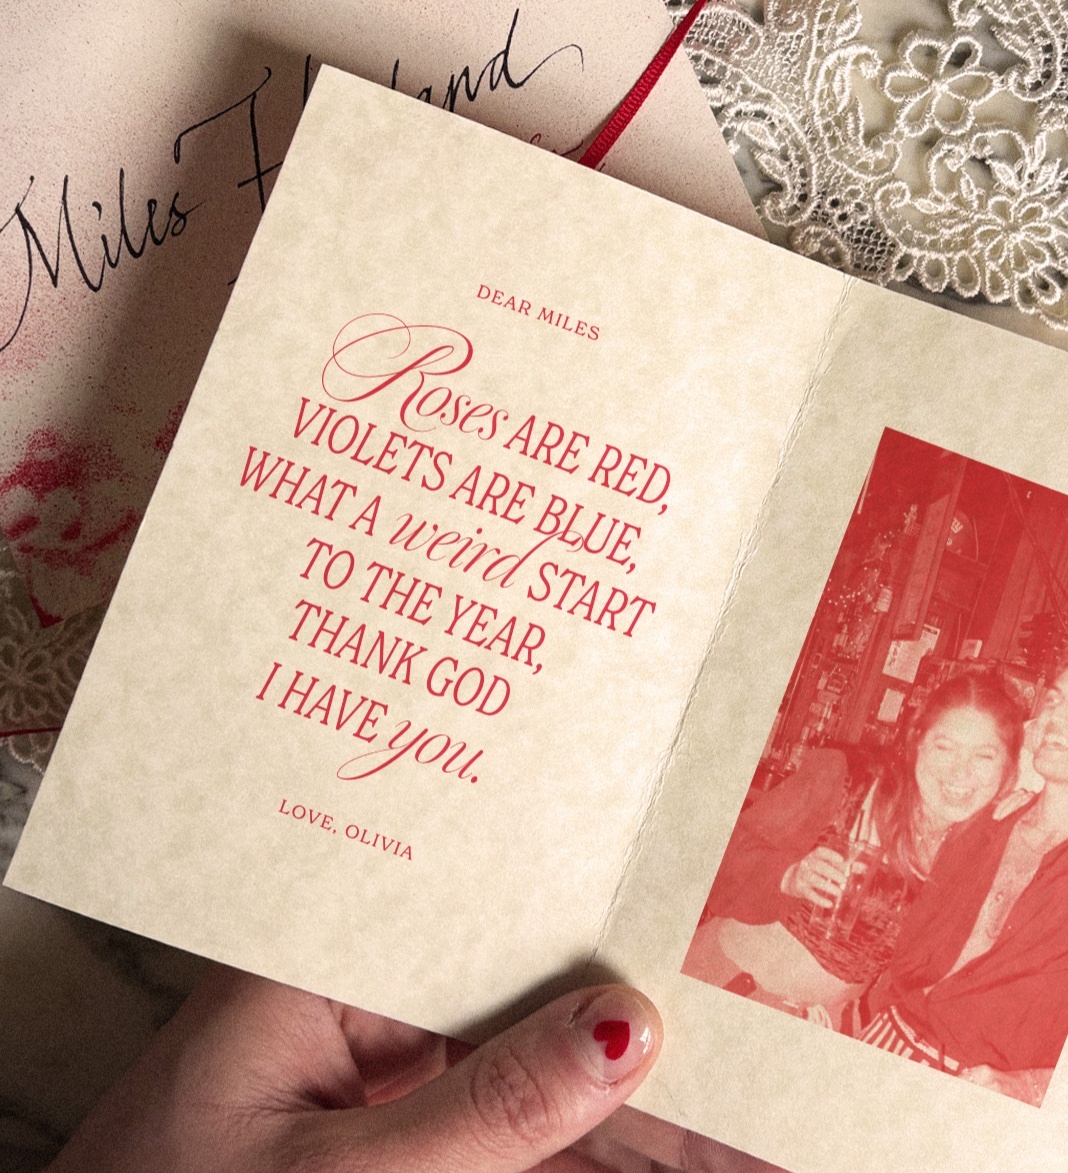 Miles
DEAR MILES
Roses ARE RED,
VIOLETS ARE BLUE,
WHAT A weird START
TO THE YEAR,
THANK GOD
I HAVE you.
LOVE, OLIVIA